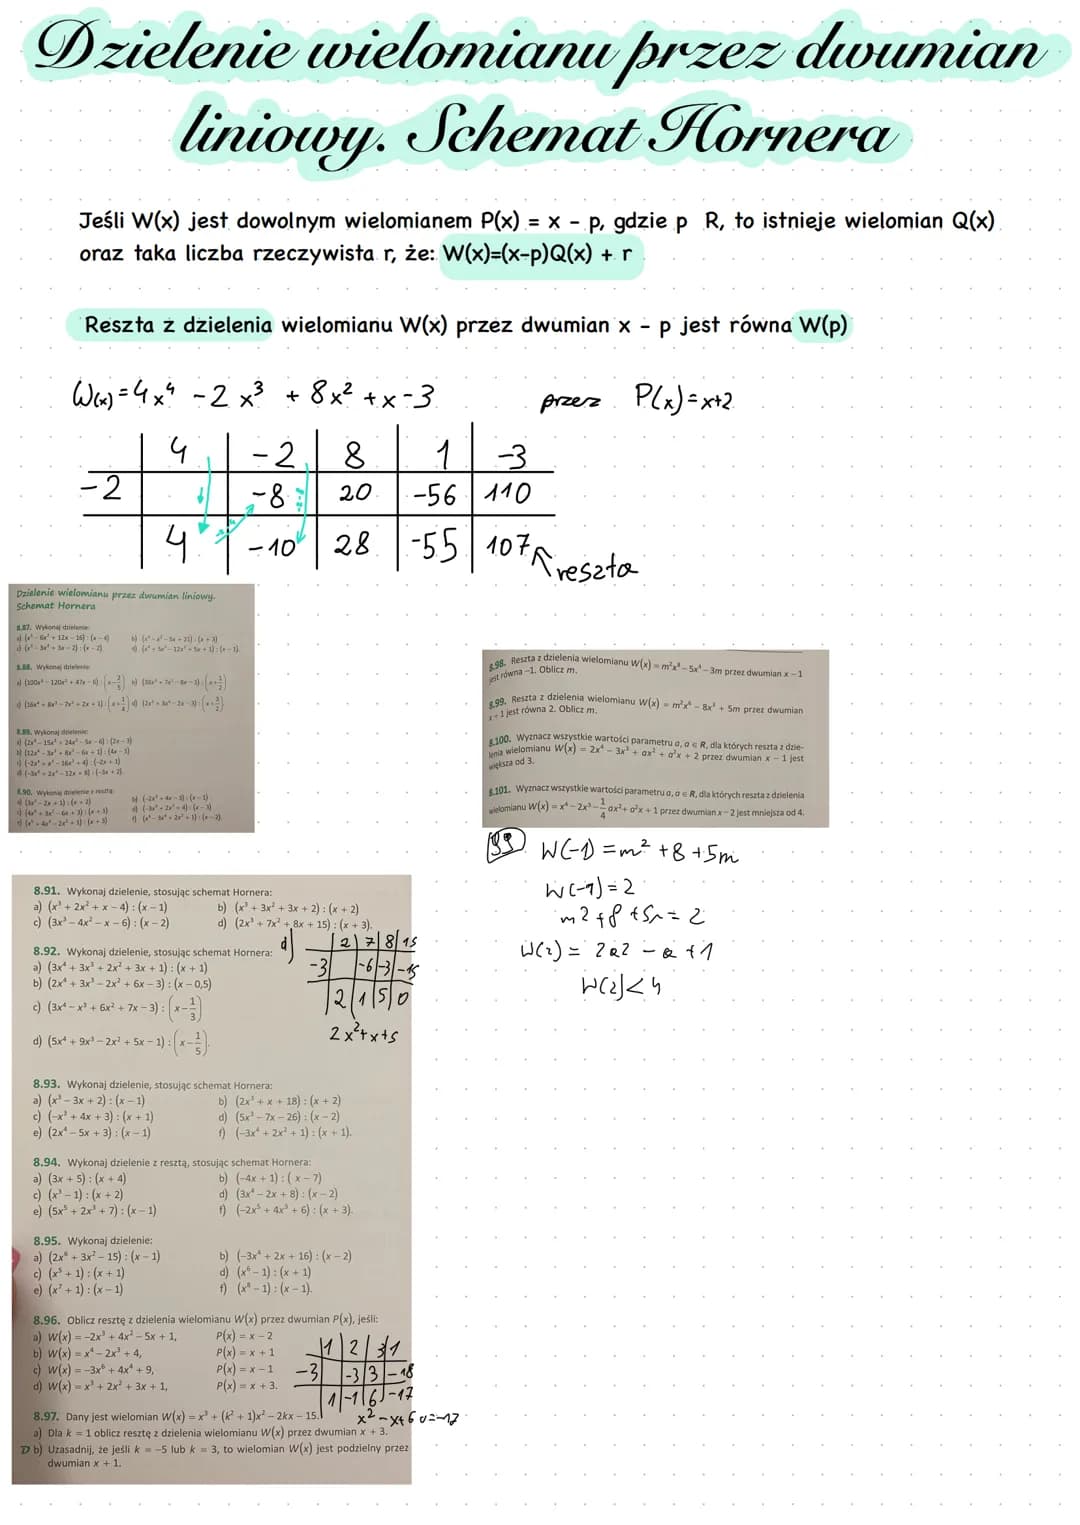 Dzielenie wielomianu przez dwumian
liniowy. Schemat Hornera
Jeśli W(x) jest dowolnym wielomianem P(x) = x - p, gdzie p R, to istnieje wielomian Q(x)
oraz taka liczba rzeczywista r, że: W(x)=(x-p)Q(x) + r
Reszta z dzielenia wielomianu W(x) przez dwumian x - p jest równa W(p)
W(x)=4x⁴ -2x³ + 8x² +x-3 przez P(x)=x+2
4 -2 8 1 -3
-2 -8 20 -56 110
4 -10 28 -55 107 reszta
Dzielenie wielomianu przez dwumian liniowy.
Schemat Hornera
8.87. Wykonaj dzielenie:
8.88. Wykonaj dzielenie:
8.89. Wykonaj dzielenie:
8.90. Wykonaj dzielenie z resztą:
8.98. Reszta z dzielenia wielomianu W(x) = m²x⁸ – 5x⁴ – 3m przez dwumian x – 1
jest równa –1. Oblicz m.
8.99. Reszta z dzielenia wielomianu W(x) = m²x⁶ – 8x³ + 5m przez dwumian
x + 1 jest równa 2. Oblicz m.
8.100. Wyznacz wszystkie wartości parametru a, a ∈ R, dla których reszta z dzie-
lenia wielomianu W(x) = 2x⁴ – 3x³ + ax² + a²x + 2 przez dwumian x – 1 jest
większa od 3.
8.101. Wyznacz wszystkie wartości parametru a, a ∈ R, dla których reszta z dzielenia
wielomianu W(x) = x⁴ – 2x³ – 1/4 ax² + a²x + 1 przez dwumian x – 2 jest mniejsza od 4.
99 W(-1) = m² +8 +5m
W(-1) = 2
m² + 8 + 5m = 2
W(2) = 2a² - a + 1
W(2)<4
8.91. Wykonaj dzielenie, stosując schemat Hornera:
a) (x³ + 2x² + x – 4) : (x – 1) b) (x³ + 3x² + 3x + 2) : (x + 2)
c) (3x³ – 4x² – x – 6) : (x – 2) d) (2x³ + 7x² + 8x + 15) : (x + 3).
8.92. Wykonaj dzielenie, stosując schemat Hornera:
a) (3x⁴ + 3x³ + 2x² + 3x + 1) : (x + 1)
b) (2x⁴ + 3x³ – 2x² + 6x – 3) : (x – 0,5)
c) (3x⁴ – x³ + 6x² + 7x – 3) : (x – 1/3)
d) (5x⁴ + 9x³ – 2x² + 5x – 1) : (x – 1/5).
d) 2 7 8 15
-3 -6 -3 -15
2 1 5 0
2x²+x+5
8.93. Wykonaj dzielenie, stosując schemat Hornera:
a) (x³ – 3x + 2) : (x – 1) b) (2x³ + x + 18) : (x + 2)
c) (–x³ + 4x + 3) : (x + 1) d) (5x³ – 7x – 26) : (x – 2)
e) (2x⁴ – 5x + 3) : (x – 1) f) (–3x⁴ + 2x² + 1) : (x + 1).
8.94. Wykonaj dzielenie z resztą, stosując schemat Hornera:
a) (3x + 5) : (x + 4) b) (–4x + 1) : ( x – 7)
c) (x³ – 1) : (x + 2) d) (3x⁴ – 2x + 8) : (x – 2)
e) (5x⁵ + 2x³ + 7) : (x – 1) f) (–2x⁵ + 4x³ + 6) : (x + 3).
8.95. Wykonaj dzielenie:
a) (2x⁶ + 3x² – 15) : (x – 1) b) (–3x⁴ + 2x + 16) : (x – 2)
c) (x⁵ + 1) : (x + 1) d) (x⁶ – 1) : (x + 1)
e) (x⁷ + 1) : (x – 1) f) (x⁸ – 1) : (x – 1).
8.96. Oblicz resztę z dzielenia wielomianu W(x) przez dwumian P(x), jeśli:
a) W(x) = –2x³ + 4x² – 5x + 1, P(x) = x – 2
b) W(x) = x⁴ – 2x³ + 4, P(x) = x + 1
c) W(x) = –3x⁶ + 4x⁴ + 9, P(x) = x – 1
d) W(x) = x³ + 2x² + 3x + 1, P(x) = x + 3.
1 2 3 1
-3 -3 3 -18
1 -1 6 -17
x²-x+6 r=-17
8.97. Dany jest wielomian W(x) = x³ + (k² + 1)x² – 2kx – 15.
a) Dla k = 1 oblicz resztę z dzielenia wielomianu W(x) przez dwumian x + 3.
D b) Uzasadnij, że jeśli k = –5 lub k = 3, to wielomian W(x) jest podzielny przez
dwumian x + 1.